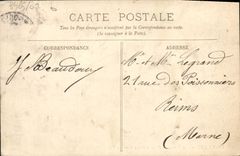 CARTE POSTALE
Tous les Pays étrangers n'acceptent pas la Correspondance au recto
(Se renseigner à la Poste)
CORRESPONDANCE
ADRESSE
J Beaudoux
Mr et Mme Legrand
21 rue des Poissonniers
Reims
(Marne)